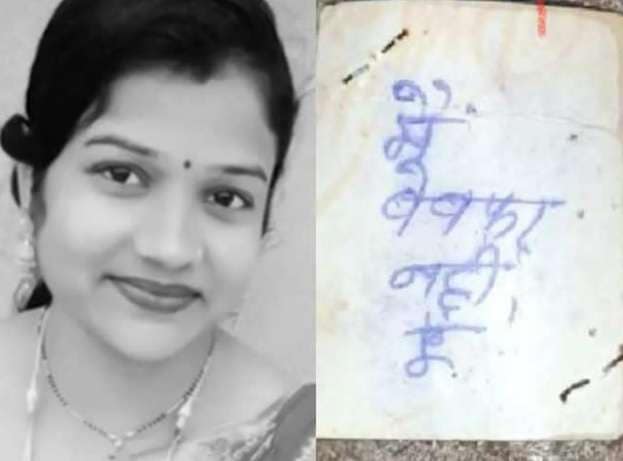 मैं
बेवफा
नहीं
हूं